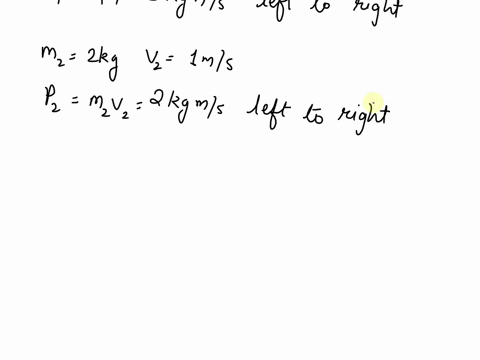 left to right
m₂ = 2kg V₂ = 1m/s
P₂ = m₂V₂ = 2 kg m/s left to right